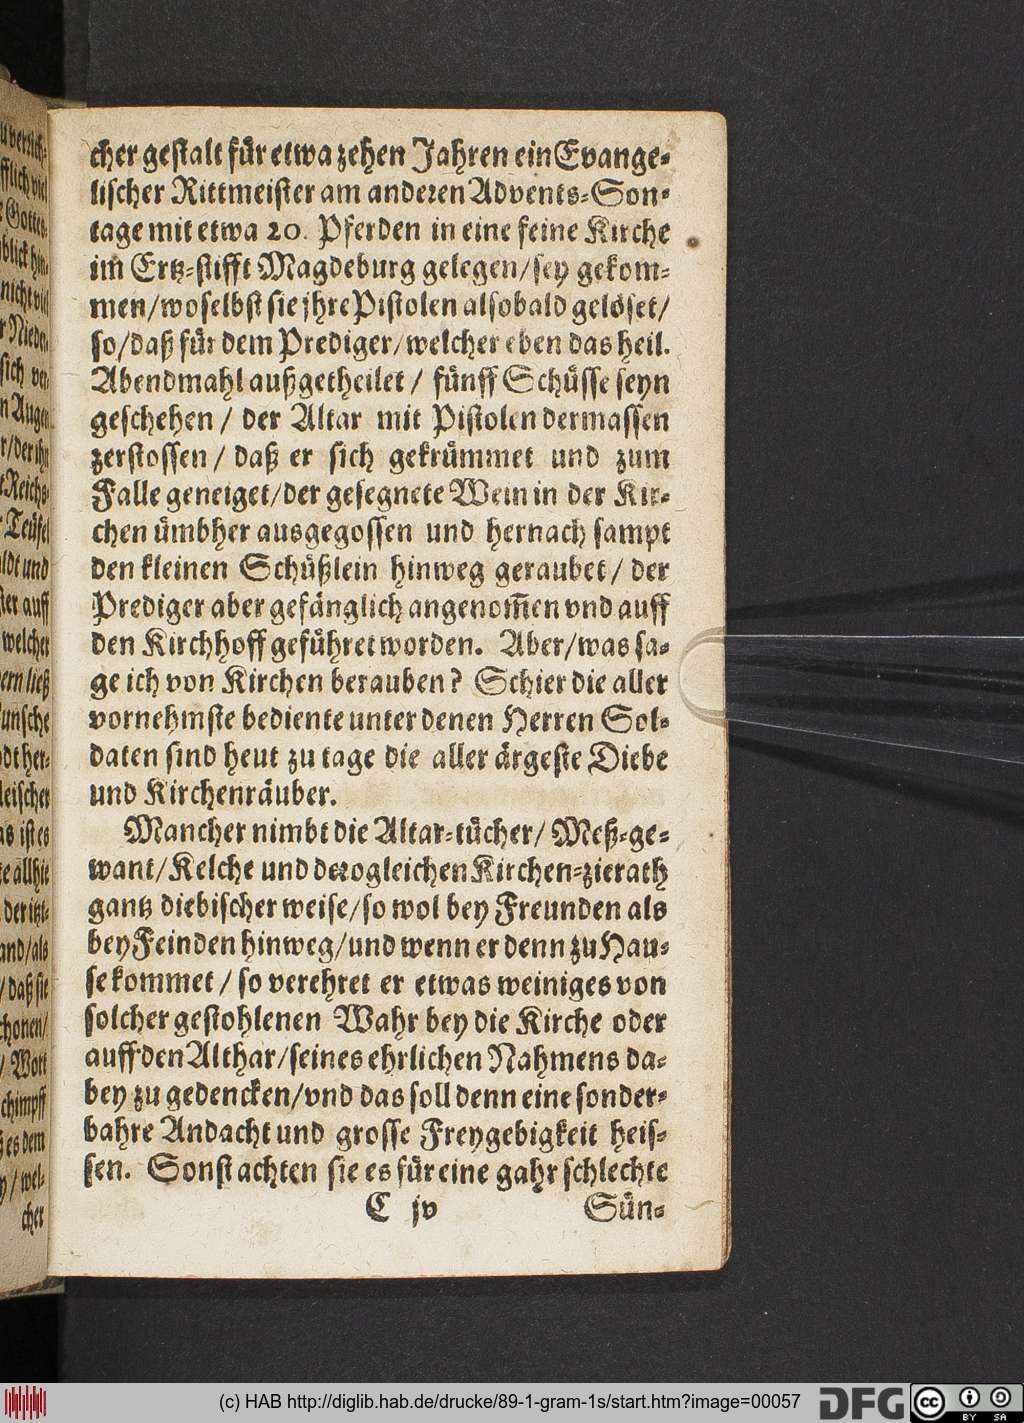 cher gestalt für etwa zehen Jahren ein Evange-
lischer Rittmeister am anderen Advents-Son-
tage mit etwa 20. Pferden in eine feine Kirche
im Ertz-stifft Magdeburg gelegen/sey gekom-
men/woselbst sie jhre Pistolen alsobald gelöset/
so/daß für dem Prediger/welcher eben das heil.
Abendmahl außgetheilet/ fünff Schüsse seyn
geschehen/ der Altar mit Pistolen dermassen
zerstossen/ daß er sich gekrümmet und zum
Falle geneiget/der gesegnete Wein in der Kir-
chen ümbher ausgegossen und hernach sampt
den kleinen Schüßlein hinweg geraubet/ der
Prediger aber gefänglich angenom̃en vnd auff
den Kirchhoff geführet worden. Aber/was sa-
ge ich von Kirchen berauben? Schier die aller
vornehmste bediente unter denen Herren Sol-
daten sind heut zu tage die aller ärgeste Diebe
und Kirchenräuber.
Mancher nimbt die Altar-tücher/ Meß-ge-
want/Kelche und derogleichen Kirchen-zierath
gantz diebischer weise/so wol bey Freunden als
bey Feinden hinweg/und wenn er denn zu Hau-
se kommet/ so verehret er etwas weiniges von
solcher gestohlenen Wahr bey die Kirche oder
auff den Althar/seines ehrlichen Nahmens da-
bey zu gedencken/vnd das soll denn eine sonder-
bahre Andacht und grosse Freygebigkeit heis-
sen. Sonst achten sie es für eine gahr schlechte
C jv Sün-
nicht viel
r Nieder-
sich ver-
n Augen
r/der ihn
Reichs-
Teüfel
ldt und
ter auff
welcher
ern ließ
unsche
dt her-
leischer
as ist es
te allhie
der itzt-
and/als
/daß sie
chonen/
/ Wort
chimpff
es dem
y/wel-
cher
(c) HAB http://diglib.hab.de/drucke/89-1-gram-1s/start.htm?image=00057
DFG
cc
BY SA